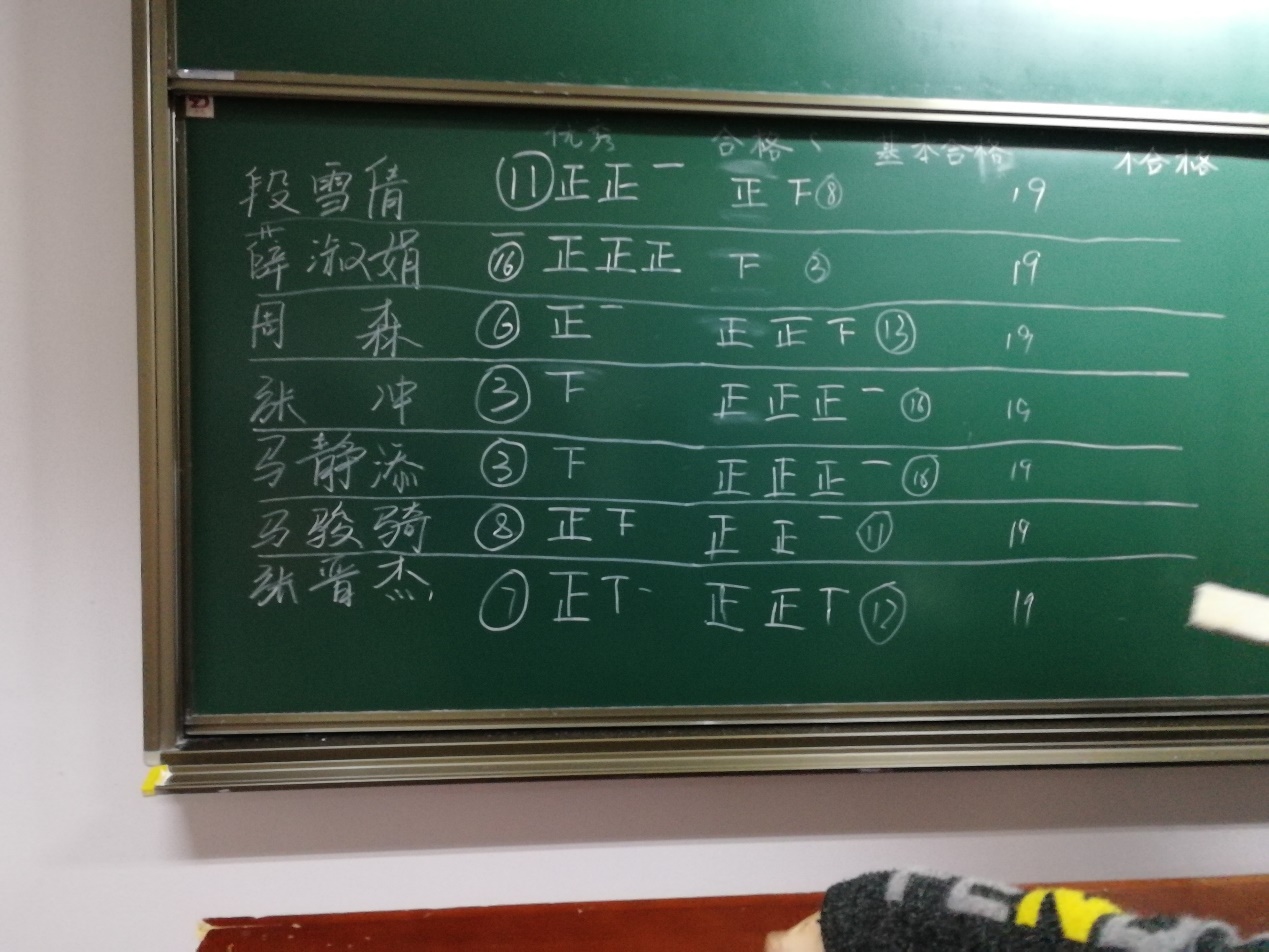 优秀 合格 基本合格 不合格
段雪倩 ⑪ 正正一 正下 ⑧ 19
薛淑娟 ⑯ 正正正一 下 ③ 19
周森 ⑥ 正一 正正下 ⑬ 19
张冲 ③ 下 正正正一 ⑯ 19
马静添 ③ 下 正正正一 ⑯ 19
马骏骑 ⑧ 正下 正正一 ⑪ 19
张晋杰 ⑦ 正丅 正正丅 ⑫ 19